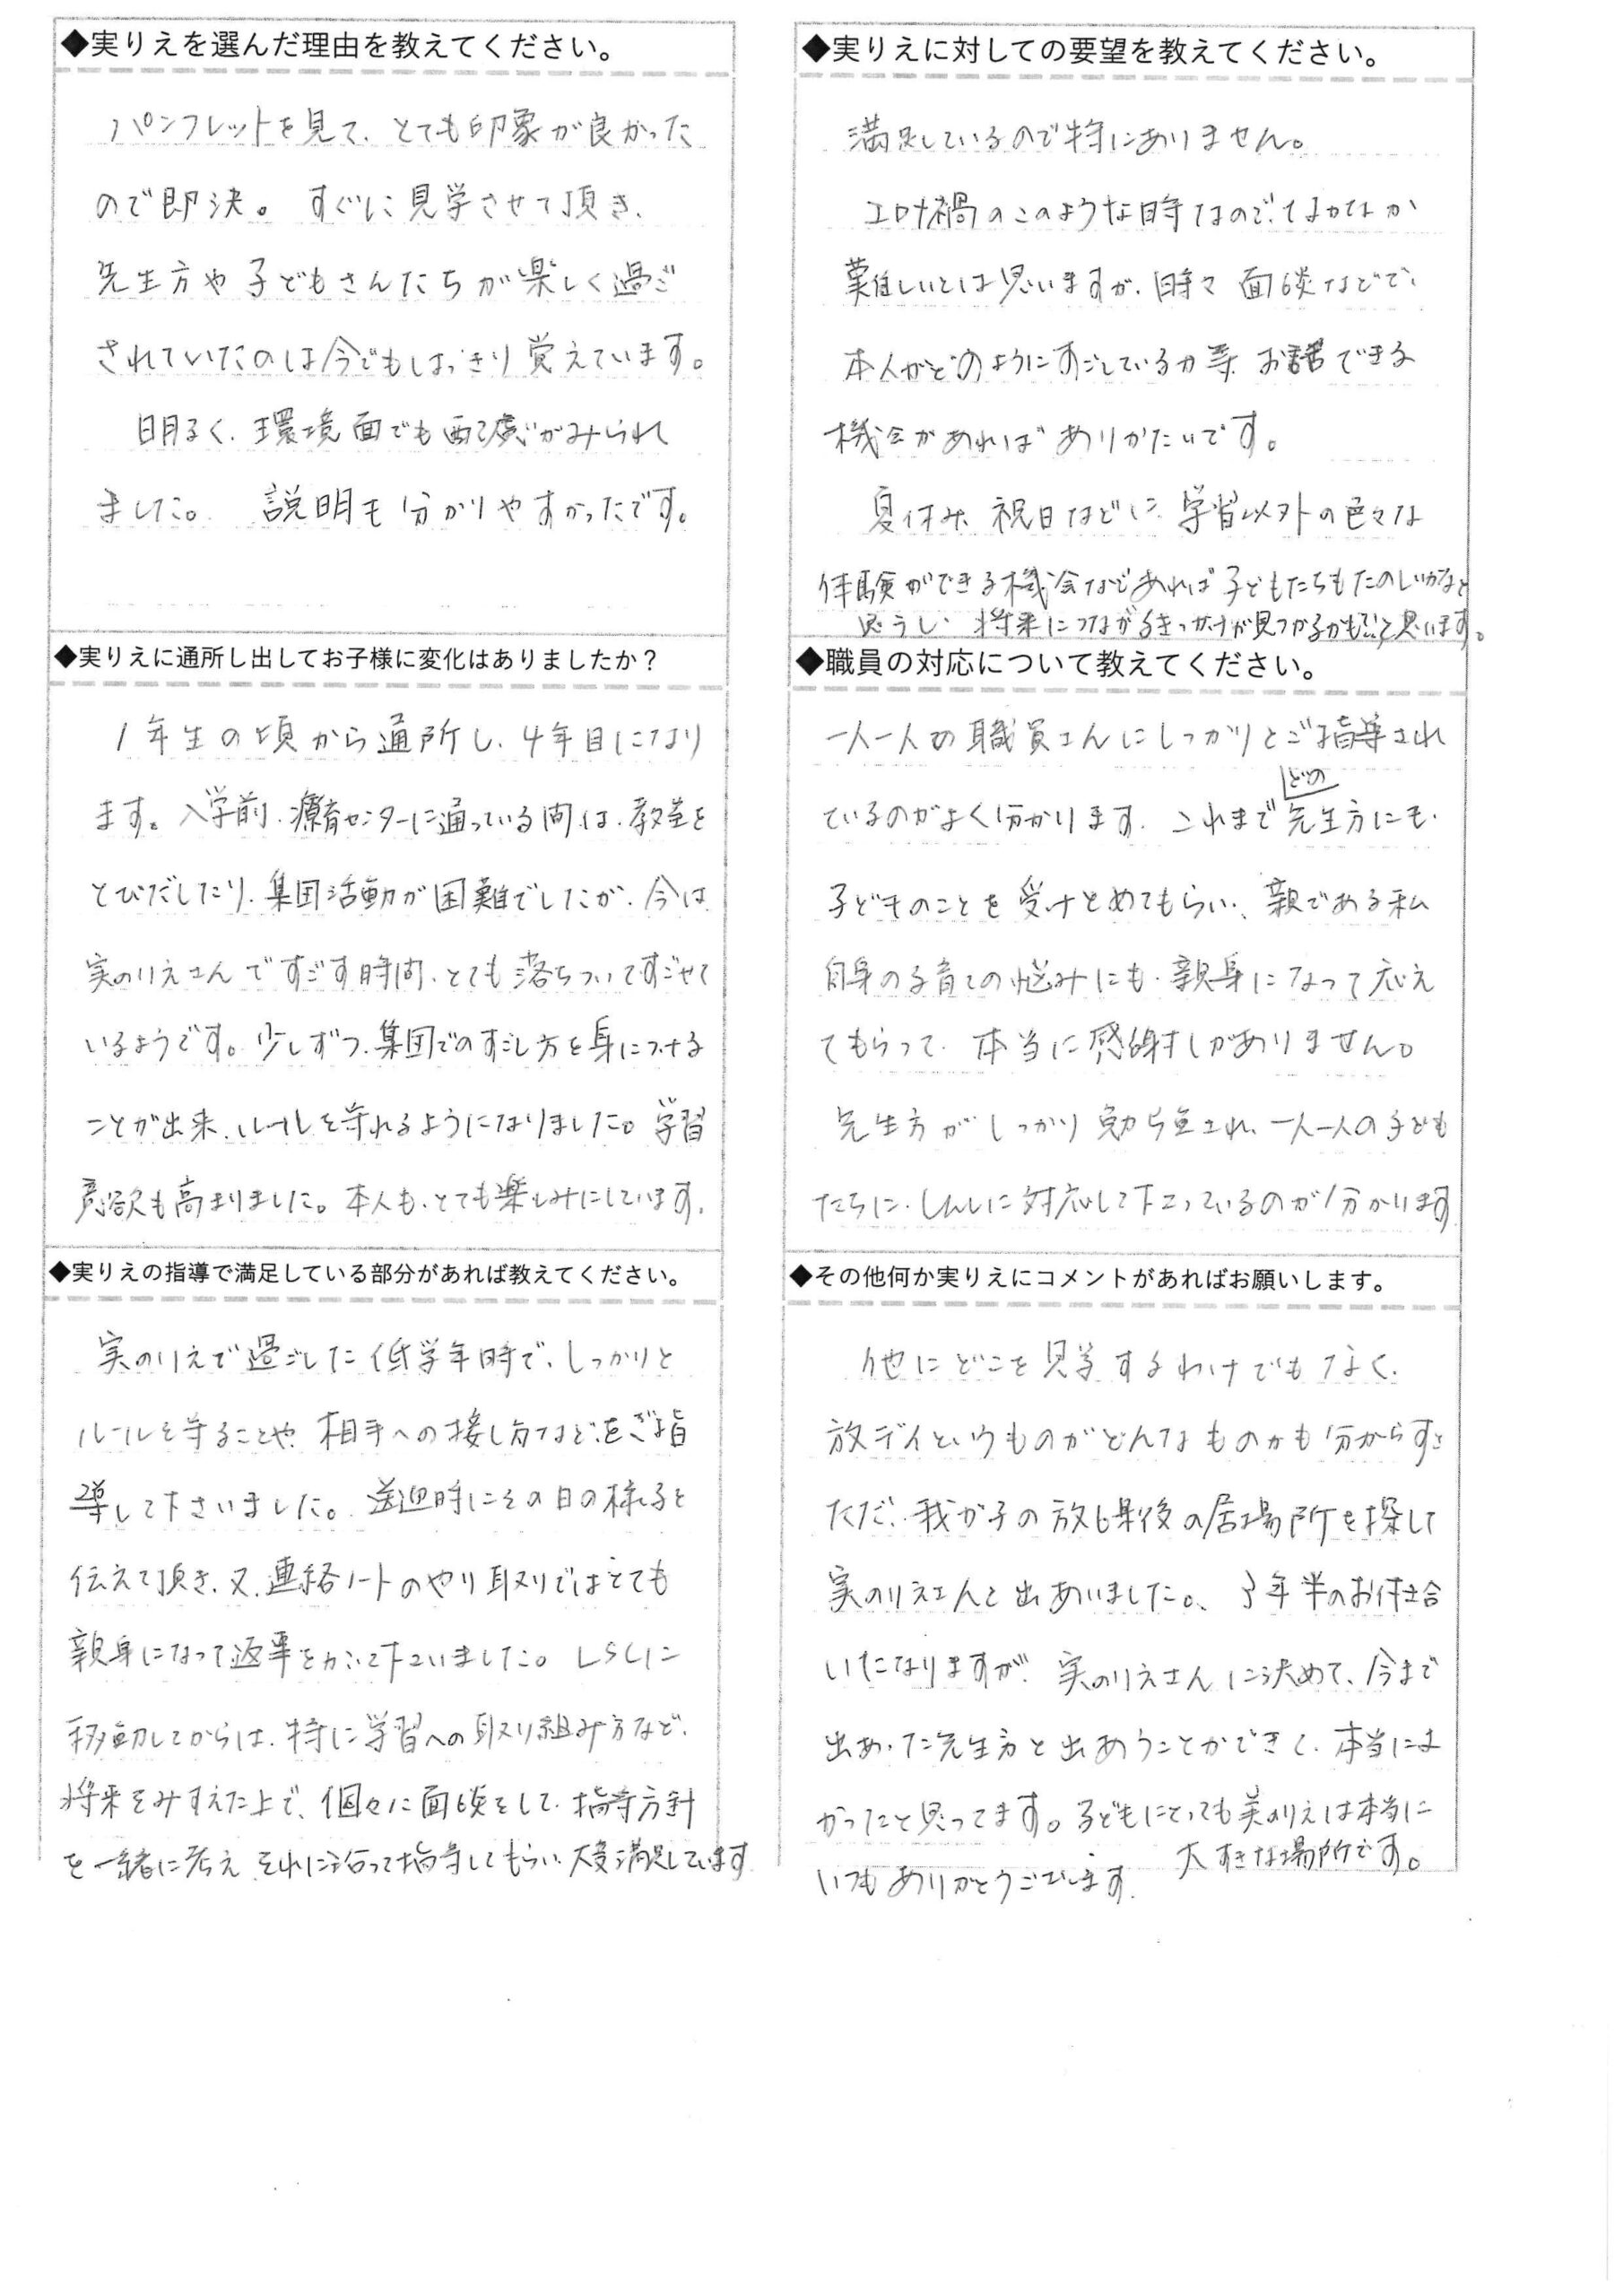 ◆実りえを選んだ理由を教えてください。
パンフレットを見て、とても印象が良かった
ので即決。すぐに見学させて頂き、
先生方や子どもさんたちが楽しく過ご
されていたのは今でもはっきり覚えています。
明るく、環境面でも配慮がみられ
ました。説明も分かりやすかったです。
◆実りえに通所し出してお子様に変化はありましたか？
1年生の頃から通所し、4年目になり
ます。入学前、療育センターに通っている間は、教室を
とびだしたり、集団活動が困難でしたが、今は
実のりえさんですごす時間、とても落ちついてすごせて
いるようです。少しずつ、集団でのすごし方を身につける
ことが出来、ルールを守れるようになりました。学習
意欲も高まりました。本人も、とても楽しみにしています。
◆実りえの指導で満足している部分があれば教えてください。
実のりえで過ごした低学年時で、しっかりと
ルールを守ることや、相手への接し方などをご指
導して下さいました。送迎時にその日の様子を
伝えて頂き、又、連絡ノートのやり取りではとても
親身になって返事をかいて下さいました。LSCに
移動してからは、特に学習への取り組み方など、
将来をみすえた上で、個々に面談をして、指導方針
を一緒に考え、それに沿って指導してもらい、大変満足しています
◆実りえに対しての要望を教えてください。
満足しているので特にありません。
コロナ禍のこのような時なので、なかなか
難しいとは思いますが、時々面談などで、
本人がどのようにすごしているか等、お話できる
機会があればありがたいです。
夏休み、祝日などに、学習以外の色々な
体験ができる機会などあれば子どもたちもたのしいかなと
思うし、将来につながるきっかけが見つかるかも…と思います。
◆職員の対応について教えてください。
一人一人の職員さんにしっかりとご指導され
ているのがよく分かります。これまでどの先生方にも、
子どものことを受けとめてもらい、親である私
自身の子育ての悩みにも、親身になって応え
てもらって、本当に感謝しかありません。
先生方がしっかり勉強され、一人一人の子ども
たちに、しんしに対応して下さっているのが分かります
◆その他何か実りえにコメントがあればお願いします。
他にどこを見学するわけでもなく、
放デイというものがどんなものかも分からずに
ただ、我が子の放課後の居場所を探して
実のりえさんと出あいました。3年半のお付き合
いになりますが、実のりえさんに決めて、今まで
出あった先生方と出あうことができて、本当によ
かったと思ってます。子どもにとっても実のりえは本当に
大すきな場所です。
いつもありがとうございます。